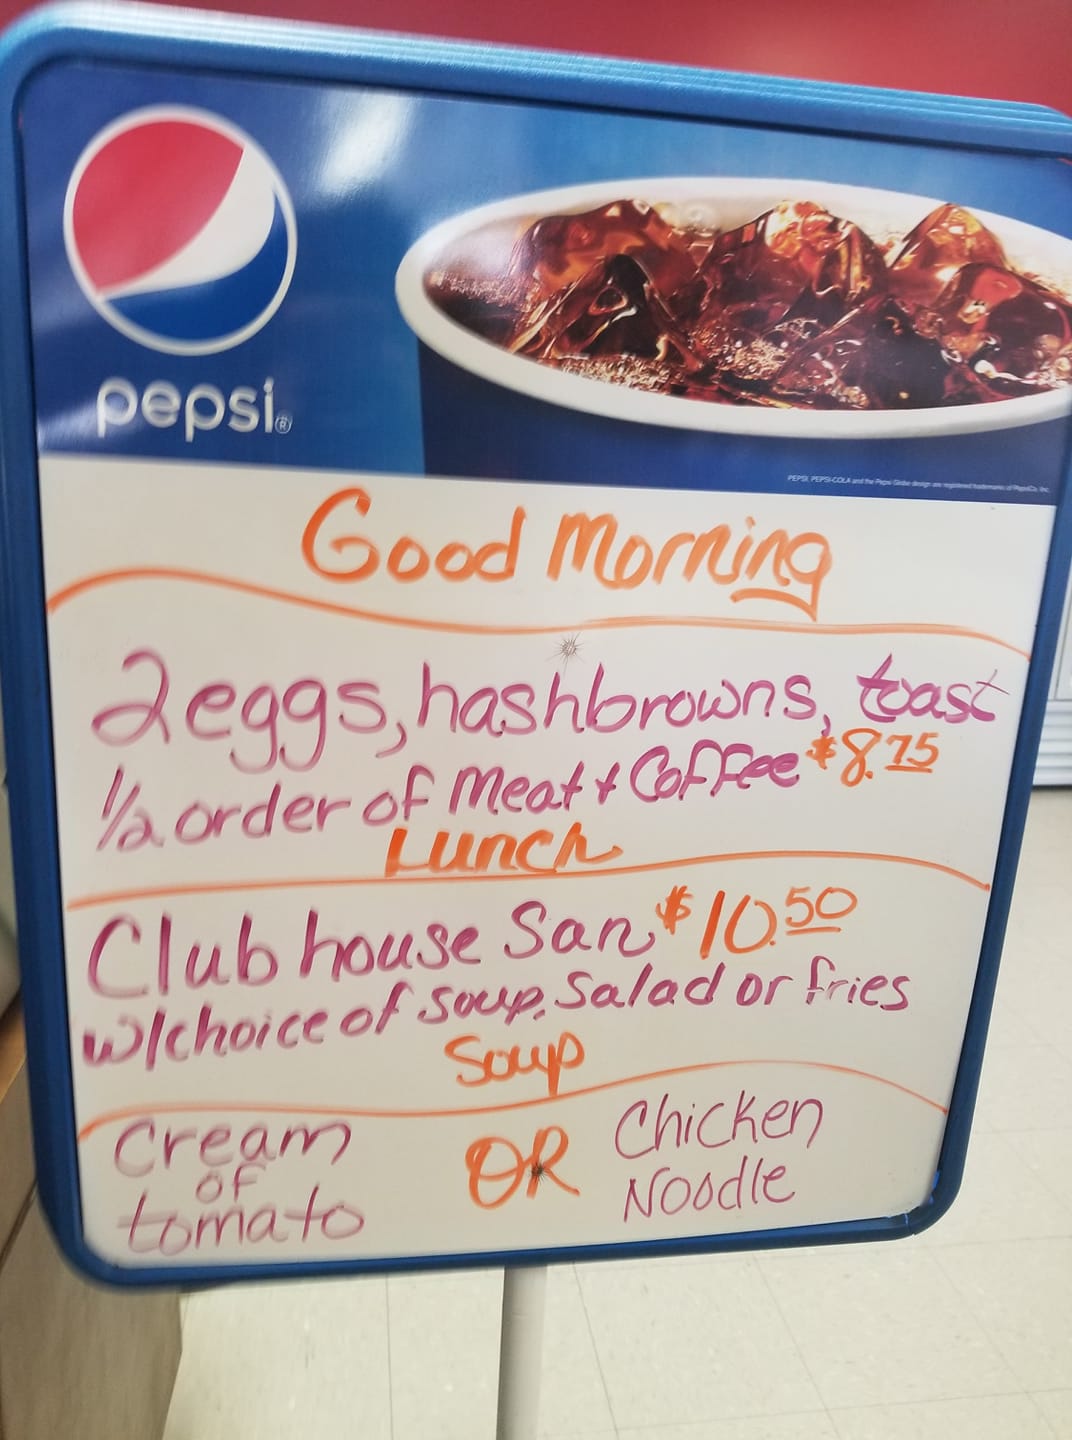 pepsi®
PEPSI, PEPSI-COLA and the Pepsi Globe design are registered trademarks of PepsiCo, Inc.
Good Morning
2 eggs, hashbrowns, toast
1/2 order of Meat + Coffee $8.75
Lunch
Club house San $10.50
w/choice of soup, Salad or fries
Soup
Cream
of
tomato
OR
Chicken
Noodle